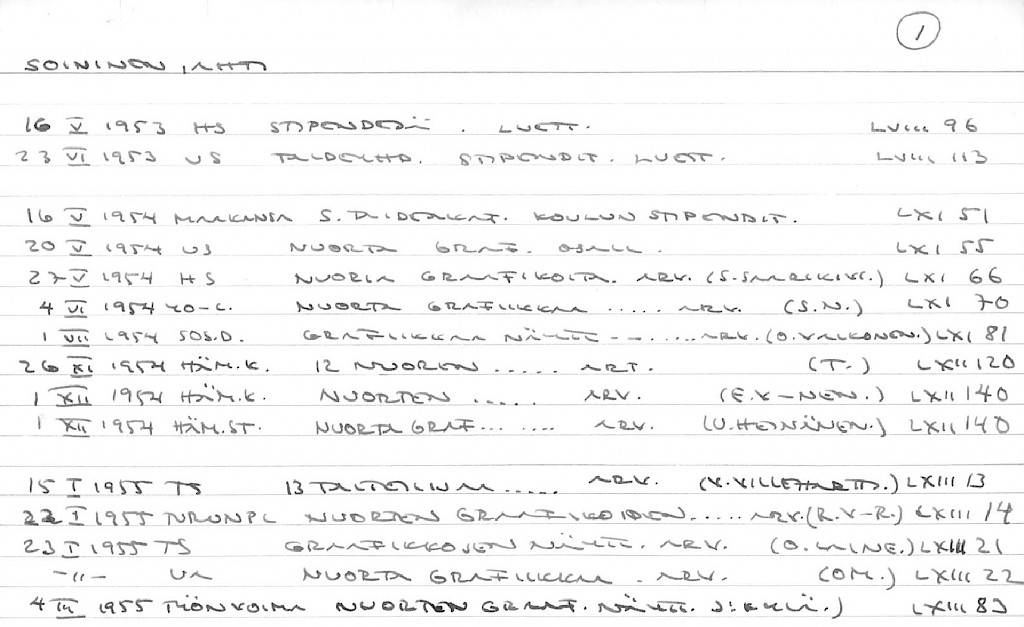 1
SOININEN, AHTI
16 V 1953 HS STIPENDEJÄ. LUETT. LVIII 96
23 VI 1953 US TAIDEAKAD. STIPENDIT. LUETT. LVIII 113
16 V 1954 MAAKANSA S. TAIDEAKAT. KOULUN STIPENDIT. LXI 51
20 V 1954 US NUORTA GRAF. OSALL. LXI 55
27 V 1954 HS NUORIA GRAAFIKOITA. ARV. (S. SARIKIVI.) LXI 66
4 VI 1954 YO-L. NUORTA GRAFIIKKAA ..... ARV. (S.N.) LXI 70
1 VII 1954 SOS.D. GRAFIIKKAA NÄYTT ........ ARV. (O. VALKONEN.) LXI 81
26 XI 1954 HÄM.K. 12 NUOREN ..... ART. (T.) LXII 120
1 XII 1954 HÄM.K. NUORTEN ..... ARV. (E.V-NEN.) LXII 140
1 XII 1954 HÄM.ST. NUORTA GRAF... .... ARV. (U. HEINÄNEN.) LXII 140
15 I 1955 TS 13 TAITEILIJAA ..... ARV. LXIII 13
22 I 1955 TURUNPL NUORTEN GRAAFIKOIDEN ..... ARV. (R.V-R.) LXIII 14
23 I 1955 TS GRAAFIKKOJEN NÄYTT. ARV. (O. LAINE.) LXIII 21
-"- UA NUORTA GRAFIIKKAA. ARV. (OM.) LXIII 22
4 III 1955 TYÖNVOIMA NUORTEN GRAAF. NÄYTT. LXIII 83